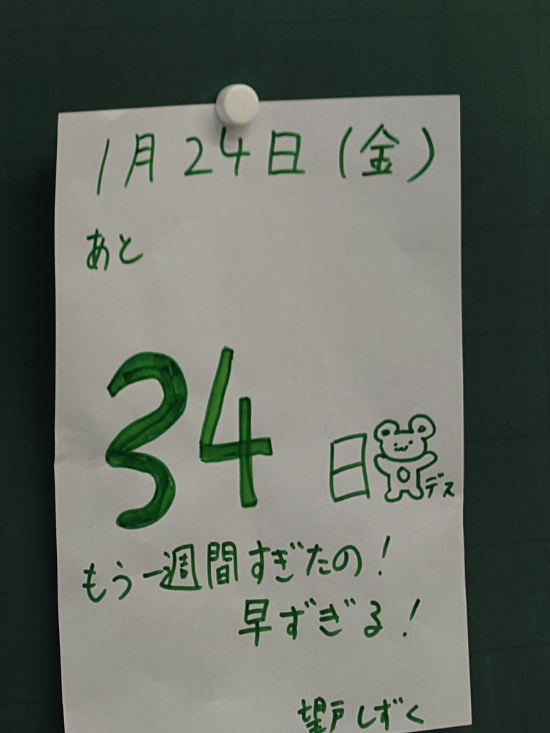 1月24日(金)
あと
34日デス
もう一週間すぎたの!
早ずぎる!
望戸しずく